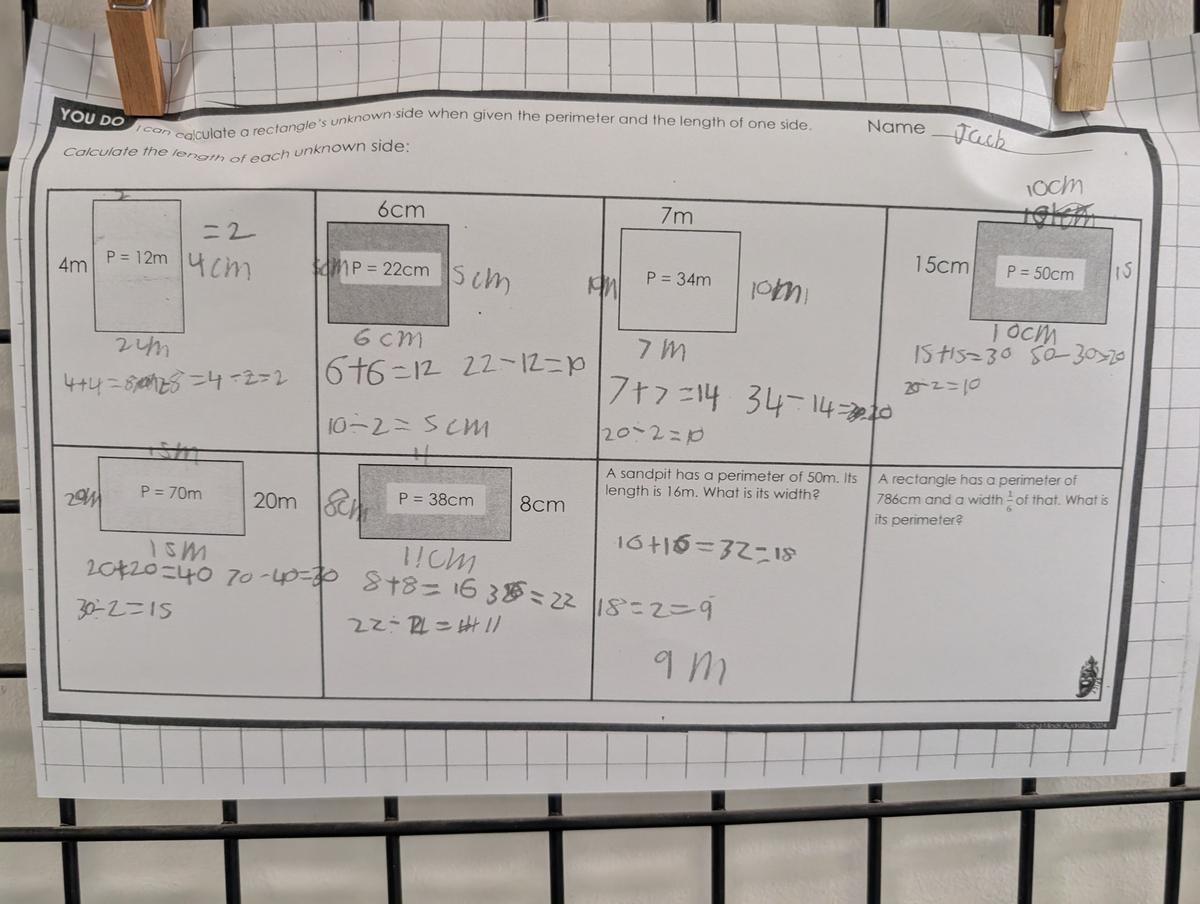 YOU DO I can calculate a rectangle's unknown side when given the perimeter and the length of one side.
Name Jack
Calculate the length of each unknown side:
2
4m
P = 12m
= 2
4cm
2cm
4+4=8
=4÷2=2
6cm
5cm
P = 22cm
5cm
6cm
6+6=12 22-12=10
10÷2=5cm
7m
10m
P = 34m
10m
7m
7+7=14 34-14=20
20÷2=10
10cm
15cm
P = 50cm
15
10cm
15+15=30 50-30=20
20÷2=10
15m
20m
P = 70m
20m
15m
20+20=40 70-40=30
30÷2=15
11
8cm
P = 38cm
8cm
11cm
8+8=16
=22
22÷2=11
A sandpit has a perimeter of 50m. Its
length is 16m. What is its width?
16+16=32=18
18=2=9
9m
A rectangle has a perimeter of
786cm and a width 1/6 of that. What is
its perimeter?
Shaping Minds Australia, 2024